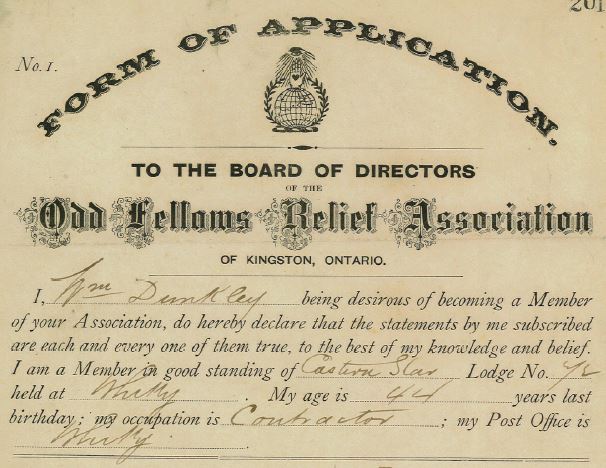 201
FORM OF APPLICATION.
No. 1.
TO THE BOARD OF DIRECTORS
OF THE
Odd Fellows Relief Association
OF KINGSTON, ONTARIO.
I, Wm Dunkley being desirous of becoming a Member
of your Association, do hereby declare that the statements by me subscribed
are each and every one of them true, to the best of my knowledge and belief.
I am a Member in good standing of Eastern Star Lodge No. 72
held at Whitby . My age is 44 years last
birthday; my occupation is Contractor ; my Post Office is
Whitby .